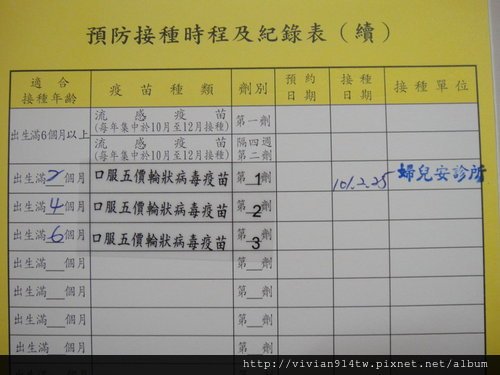 預防接種時程及紀錄表(續)
適合接種年齡 疫苗種類 劑別 預約日期 接種日期 接種單位
出生滿6個月以上 流感疫苗 (每年集中於10月至12月接種) 第一劑
流感疫苗 (每年集中於10月至12月接種) 隔四週第二劑
出生滿2個月 口服五價輪狀病毒疫苗 第1劑 101.2.25 婦兒安診所
出生滿4個月 口服五價輪狀病毒疫苗 第2劑
出生滿6個月 口服五價輪狀病毒疫苗 第3劑
出生滿__個月 第__劑
出生滿__個月 第__劑
出生滿 個月 第__劑
出生滿 個月 第__劑
http://vivian914tw.pixnet.net/album